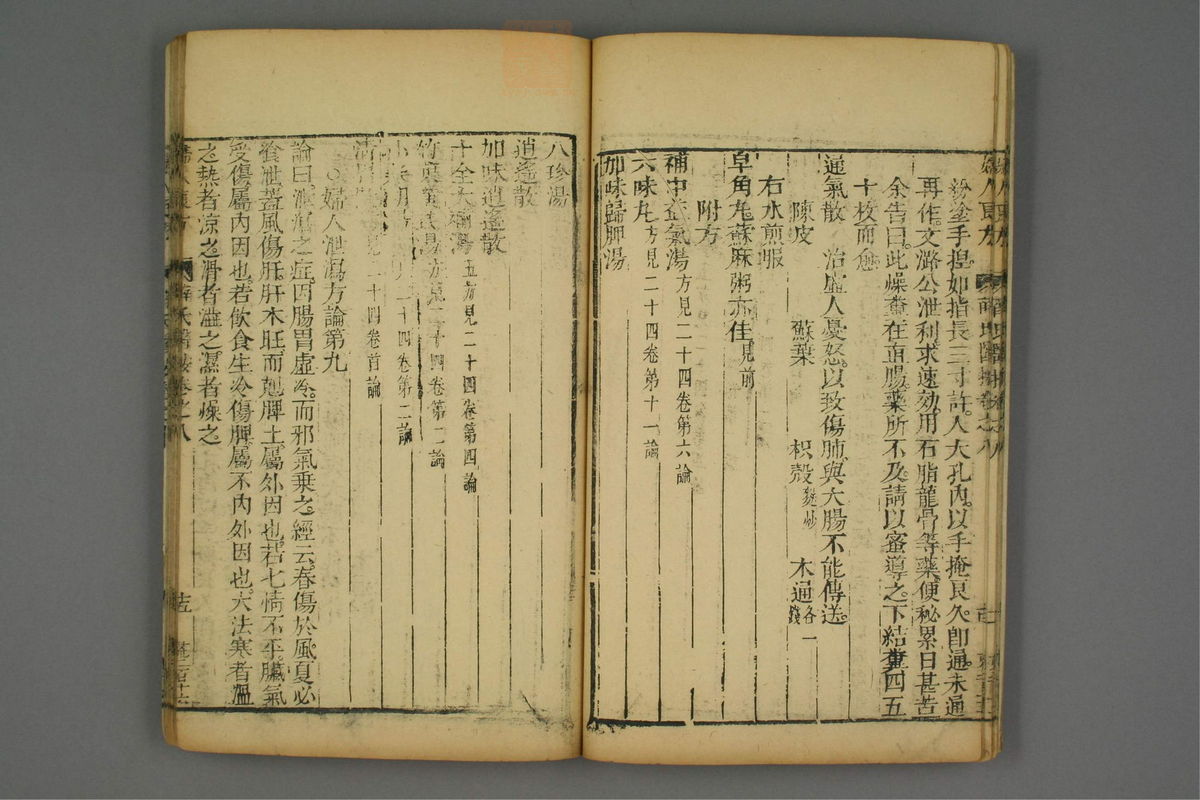 粉塗手捏如指長三寸許人大孔內以手掩良久卽通未通
再作文潞公泄利求速効用石脂龍骨等藥便秘累日甚苦
余告曰此燥糞在直腸藥所不及請以蜜導之下結糞四五
十枚而愈
通氣散 治虛人憂怒以致傷肺與大腸不能傳送
陳皮 蘇葉 枳殼麩炒 木通各一錢
右水煎服
皂角丸蘇麻粥亦佳見前
附方
補中益氣湯方見二十四卷第六論
六味丸方見二十四卷第十一論
加味歸脾湯
八珍湯
逍遙散
加味逍遙散
十全大補湯五方見二十四卷第四論
二十四卷第二論
二十四卷第二論
二十四卷首論
婦人泄瀉方論第九
論曰泄瀉之症因腸胃虛冷而邪氣乗之經云春傷於風夏必
飱泄葢風傷肝肝木旺而剋脾土屬外因也若七情不平臟氣
受傷屬內因也若飲食生冷傷脾屬不內外因也大法寒者溫
之熱者凉之滑者澁之濕者燥之